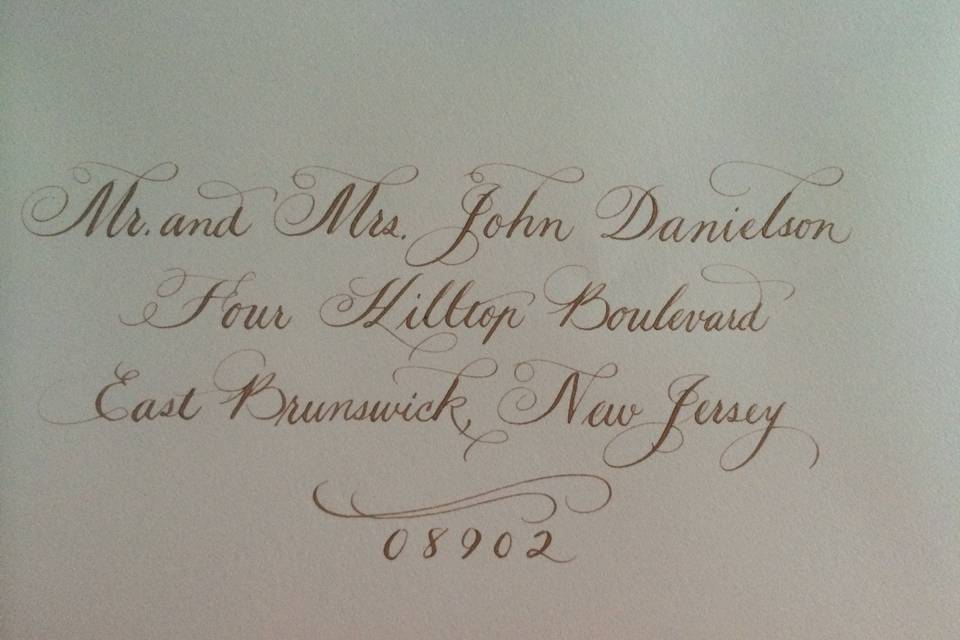 Mr. and Mrs. John Danielson
Four Hilltop Boulevard
East Brunswick, New Jersey
08902